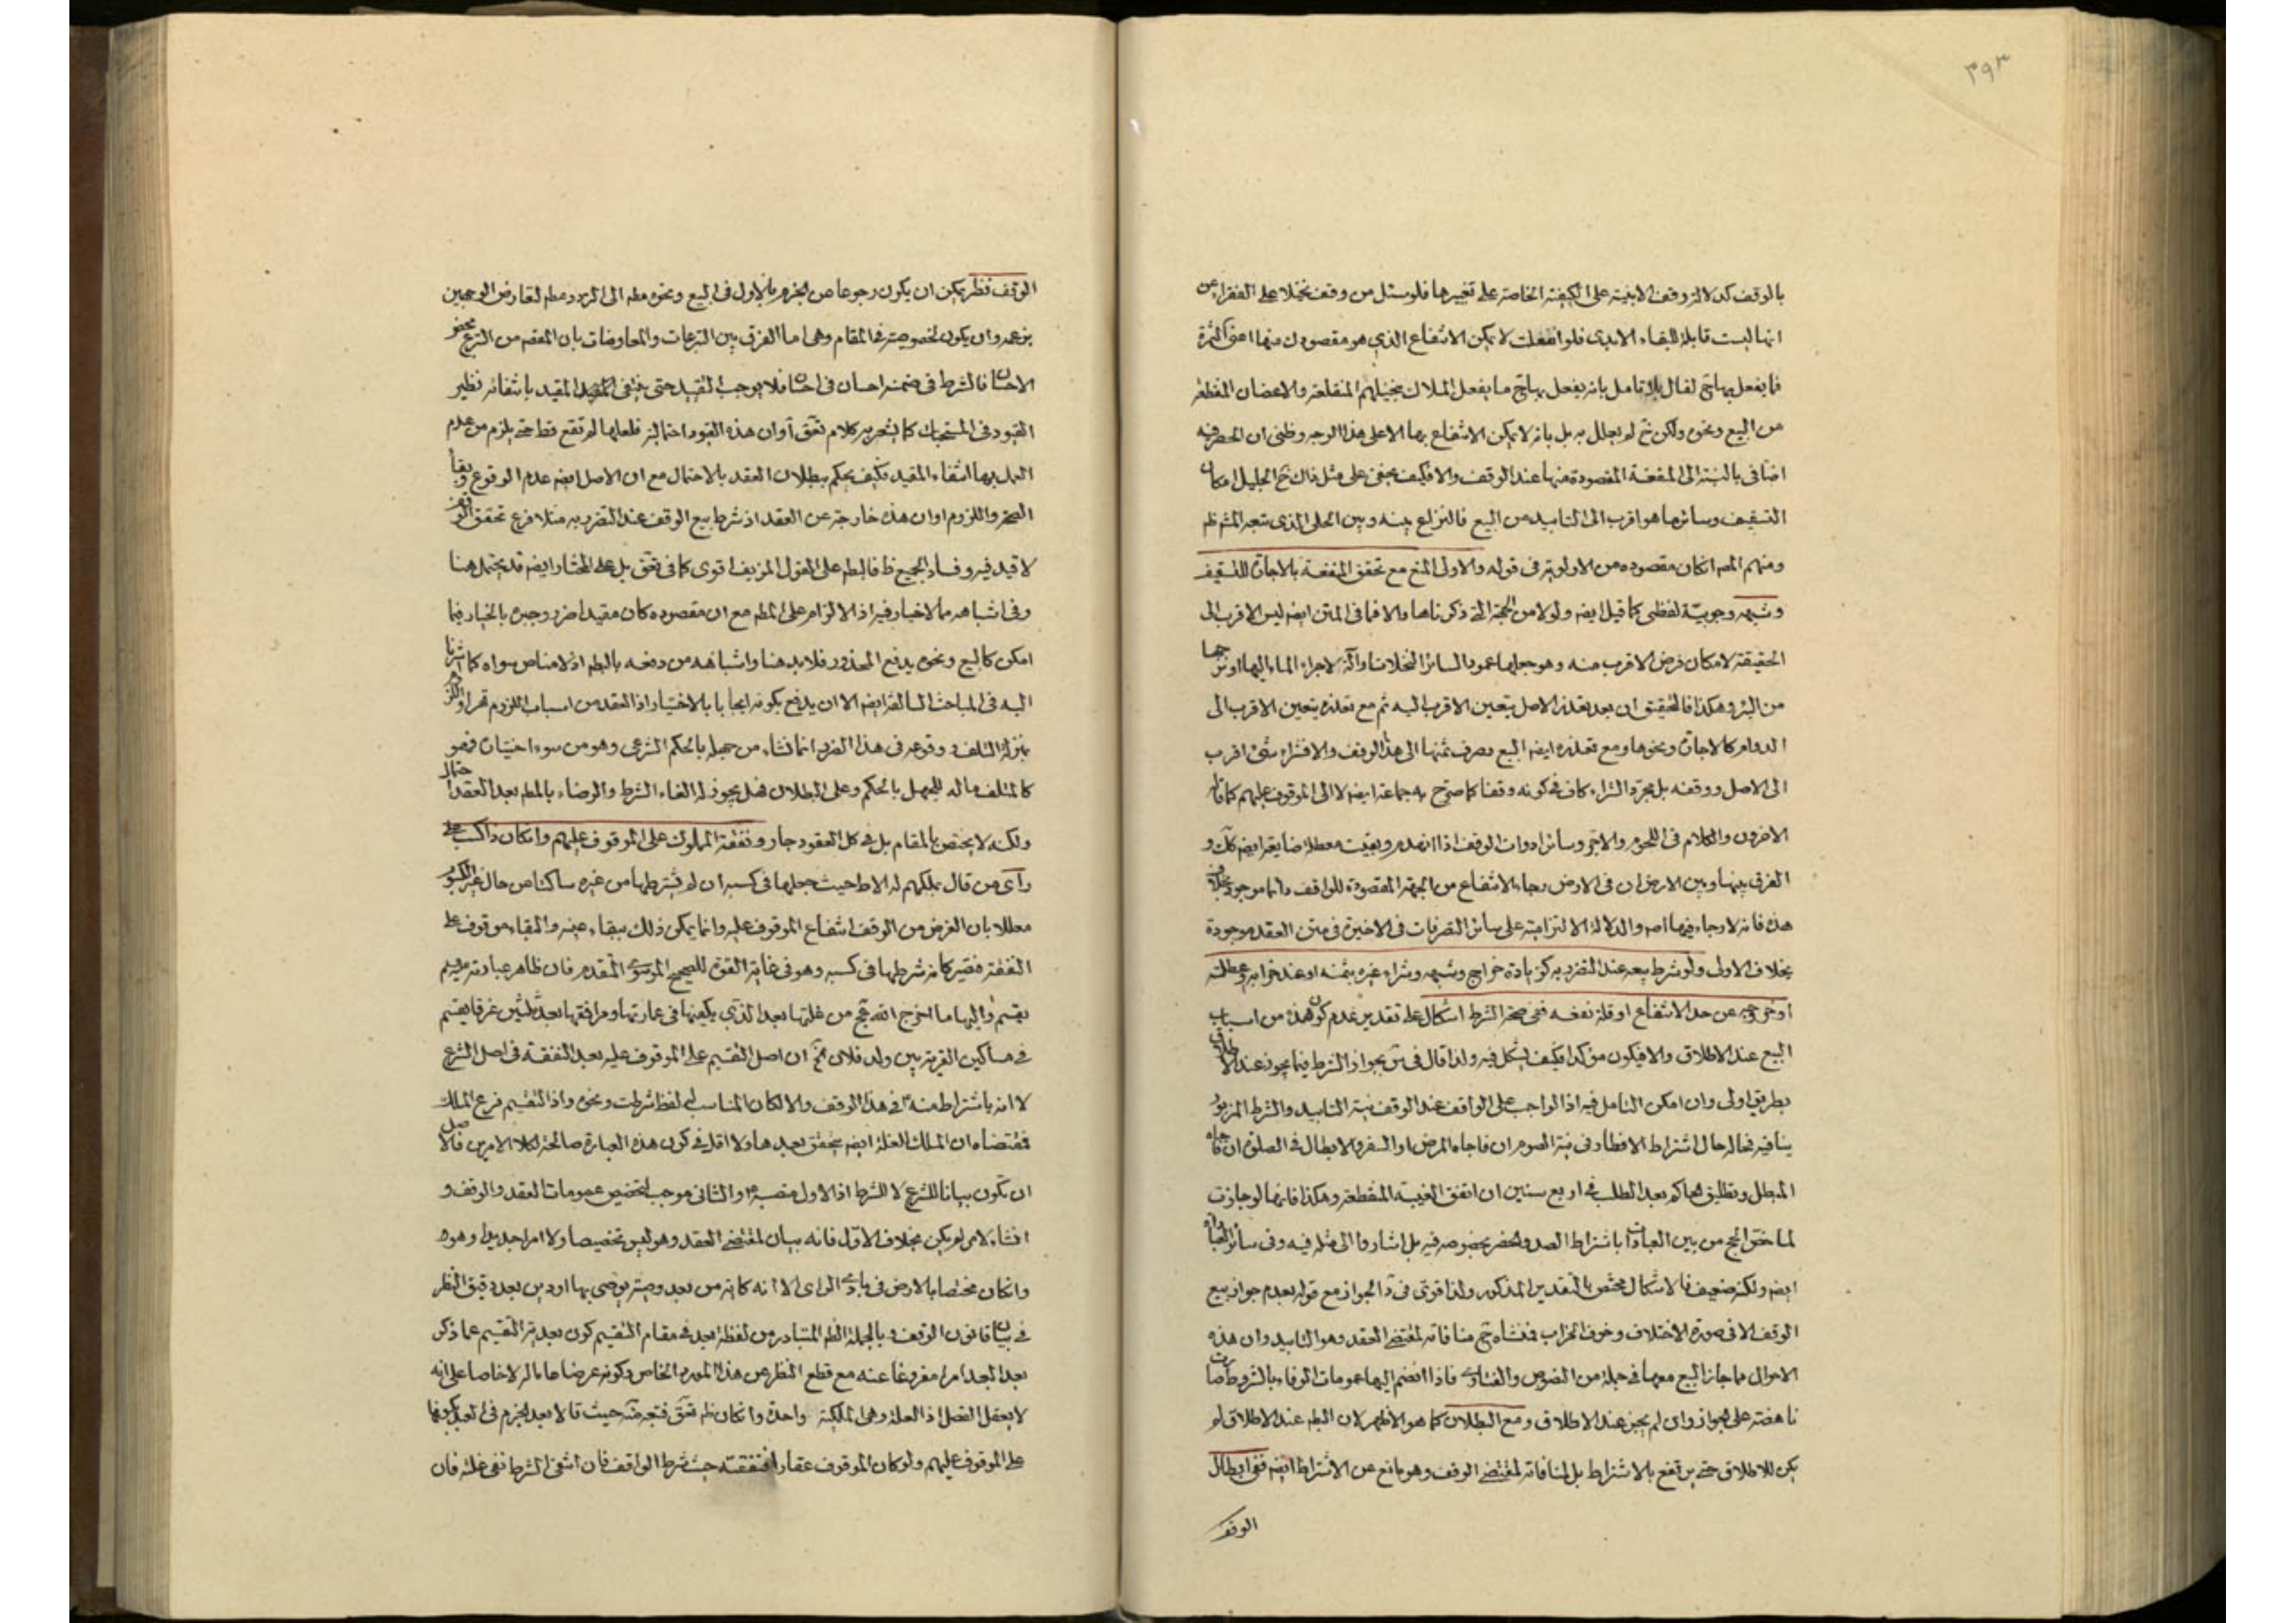 ٣٩٣
بالوقف كدلالة وقف الابنية على الكيفية الخاصة على تغييرها فلو سئل من وقف نخلا على الفقراء عن
انها ليست قابلة للبقاء الابدى فلو انقلعت لا يمكن الانتفاع الذي هو مقصودك منها اعنى الثمرة
فما يفعل بها ح لقال بلا تامل بانه يفعل بها ح ما يفعل الملاك بنخيلهم المنقلعة والاغصان المنقطعة
من البيع ونحوه ولكن خ لم يعلل به بل بانه لا يمكن الانتفاع بها الا على هذا الوجه وظنى ان الحصر فيه
اضافى بالنسبة الى المنفعة المقصودة منها عند الوقف والا فكيف يخفى على مثل ذاك خ الجليل امكان
التسقيف وسائر ما هو اقرب الى التابيد من البيع فالنزاع بينه وبين الحلى الذى تبعه المتم ظم
ومنهم المص انكان مقصوده من الاولوية فى قوله والاولى المنع مع تحقق المنفعة بالاجارة للتسقيف
وشبهه وجوبية لفظى كما قيل ايضه ولولا من الحجة التى ذكرناها والا فما فى المتن ايضه ليس الاقرب الى
الحقيقة لامكان فرض الاقرب منه وهو جعلها عمودا لسائر النخلات او آلة لاجراء الماء اليها او نزحها
من البئر وهكذا فالتحقيق ان بعد تعذر الاصل يتعين الاقرب اليه ثم مع تعذره يتعين الاقرب الى
الدوام كالاجارة ونحوها ومع تعذره ايضه البيع وصرف ثمنها الى هذا الوقف والا فشراء شئ اقرب
الى الاصل ووقفه بل مجرد الشراء كاف فى كونه وقفا كما صرح به جماعة ايضه لا الى الموقوف عليهم كما قاله
الاخرون والكلام فى اللحوم والاجر وسائر ادوات الوقف اذا انهدم وبقيت معطلة ضايعة ايضه كك و
الفرق بينها وبين الارض ان فى الارض رجاء الانتفاع من الجهة المقصودة للواقف دائما موجود بخلاف
هذه فانه لا رجاء فيها اصه والدلالة الالتزامية على سائر التصرفات فى الاخيرة فى متن العقد موجودة
بخلاف الاولى ولو شرط بيعه عند التضرر به كزيادة خراج وشبهه وشراء غيره بثمنه او عند خرابه وعطلته
او خروجه عن حد الانتفاع او قلة نفعه ففى صحة الشرط اشكال على تقدير عدم كون هذه من اسباب
البيع عند الاطلاق والا فيكون مؤكدا فكيف يشكل فيه ولذا قال فى تر بجواز الشرط فيما يجوز عند الاطلاق
بطريق اولى وان امكن التامل فيه اذ الواجب على الواقف عند الوقف نية التابيد والشرط المزبور
ينافيه فحاله حال اشتراط الافطار فى نية الصوم ان فاجاه المرض او السفر والابطال فى الصلوة ان فاجاه
المبطل وتطليق الحاكم بعد الطلب فى اربع سنين ان اتفق الغيبة المنقطعة وهكذا فانها لو جازت
لما خص الحج من بين العبادات باشتراط الصد والحصر بخصوصه فيه بل اشاروا الى مثله فيه وفى سائر العبادات
ايضه ولكنه ضعيف فالاشكال مختص بالتقدير المذكور ولذا قوى فى د الجواز مع قوله بعدم جواز بيع
الوقف الا فى صورة الاختلاف وخوف الخراب فمنشاه ح منافاته لمقتضى العقد وهو التابيد وان هذه
الاحوال مما جاز البيع معها فى جملة من النصوص والفتاوى فاذا انضم اليها عمومات الوفاء بالشروط صارت
ناهضة على الجواز وان لم يجز عند الاطلاق ومع البطلان كما هو الاظهر لان البطم عند الاطلاق لم
يكن للاطلاق حتى يرتفع بالاشتراط بل لمنافاته لمقتضى الوقف وهو مانع عن الاشتراط ايضه ففى ابطال
الوقف
الوقف نظر يمكن ان يكون رجوعا عن الجزم بالاول فى البيع ونحوه مطم الى التردد مطم لتعارض الوجهين
بزعمه وان يكون لخصوصية فى المقام وهى اما الفرق بين التبرعات والمعاوضات بان المقص من التبرع محض
الاحسان فالشرط فى ضمنه احسان فى احسان فلا يوجب التقييد حتى ينتفى المقيد بانتفائه نظير
القيود فى المستحبات كما يشعر به كلام تعق او ان هذه القيود احتمالية فلعلها لم تقع قط حتى يلزم من عدم
العمل بها انتفاء المقيد فكيف يحكم ببطلان العقد بالاحتمال مع ان الاصل ايضه عدم الوقوع وبقاء
الصحة واللزوم او ان هذه خارجة عن العقد اذ شرط بيع الوقف عند التضرر به مثلا فرع تحقق الوقف
لا قيد فيه وفساد الجميع ظ فالبطم على القول المزيف اقوى كما فى تعق بل على المختار ايضه قد يحتمل هنا
وفى اشباهه مما لا خيار فيه اذ الالزام على المطم مع ان مقصوده كان مقيدا ضرر وجبره بالخيار فيما
امكن كالبيع ونحوه يدفع المحذور فلابد هنا واشباهه من دفعه بالبطم اذ لا مناص سواه كما اشرنا
اليه فى المباحث السالفة ايضه الا ان يدفع بكونه ايجابا بالاختيار اذ العقد من اسباب اللزوم قهرا واللزوم
بمنزلة التلف ووقوعه فى هذا الضرر انما نشاء من جهله بالحكم الشرعى وهو من سوء اختياره فهو
كالمتلف ماله للجهل بالحكم وعلى البطلان فهل يجوز له الغاء الشرط والرضاء بالمطم بعد العقد احتمال
ولكنه لا يختص بالمقام بل فى كل العقود جار ونفقة المملوك على الموقوف عليهم وانكان ذا كسب على
رأى من قال بملكهم له الا ط حيث جعلها فى كسبه ان لم يشترطها من غيره ساكتا عن حال غير الكسوب
معللا بان الغرض من الوقف انتفاع الموقوف عليه وانما يمكن ذلك ببقاء عينه والبقاء موقوف على
النفقة فتصير كانه شرطها فى كسبه وهو فى غاية القوة للصحيح الموسوى المتقدم فان ظاهر عبارته
يقسم واليها ما اخرج الله عج من غلتها بعد الذي يكفيها فى عمارتها ومرافقها بعد ثلثين عذقا يقسم
فى مساكين القرية بين ولد فلان الخ ان اصل التقسيم على الموقوف عليه بعد النفقة فى اصل الشرع
لا انه باشتراط منه فى هذا الوقف والا لكان المناسب له لفظ شرطت ونحوه واذ التقسيم فرع الملك
فمقتضاه ان الملك الغلة ايضه يتحقق بعدها ولا اقل فى كون هذه العبارة صالحة لكلا الامرين فالاصل
ان تكون بيانا للشرع لا للشرط اذ الاول منصبه او الثانى موجب لتخصيص عمومات العقد والوقف و
انشاء لامر لم يكن بخلاف الاول فانه بيان لمقتضى العقد وهو ليس تخصيصا ولا امرا جديدا وهو
وانكان مختصا بالارض فى بادى الراى الا انه كاية من بعد وصية يوصى بها او دين بعد دقيق النظر
فى بيان قانون الوقف وبالجملة الظم المتبادر من لفظة بعد فى مقام التقسيم كون بعدية التقسيم عما ذكر
بعد البعد امرا مفروغا عنه مع قطع النظر عن هذا المورد الخاص وكونه عرضا عاما له لا خاصا على انه
لا يعقل الفصل اذ العلة وهى الملكية واحدة وانكان ظم تعق فتبعه حيث قالا بعد الجزم فى العبد بكونها
على الموقوف عليهم ولو كان الموقوف عقارا فنفقته حيث شرط الواقف فان انتفى الشرط ففى غلته فان